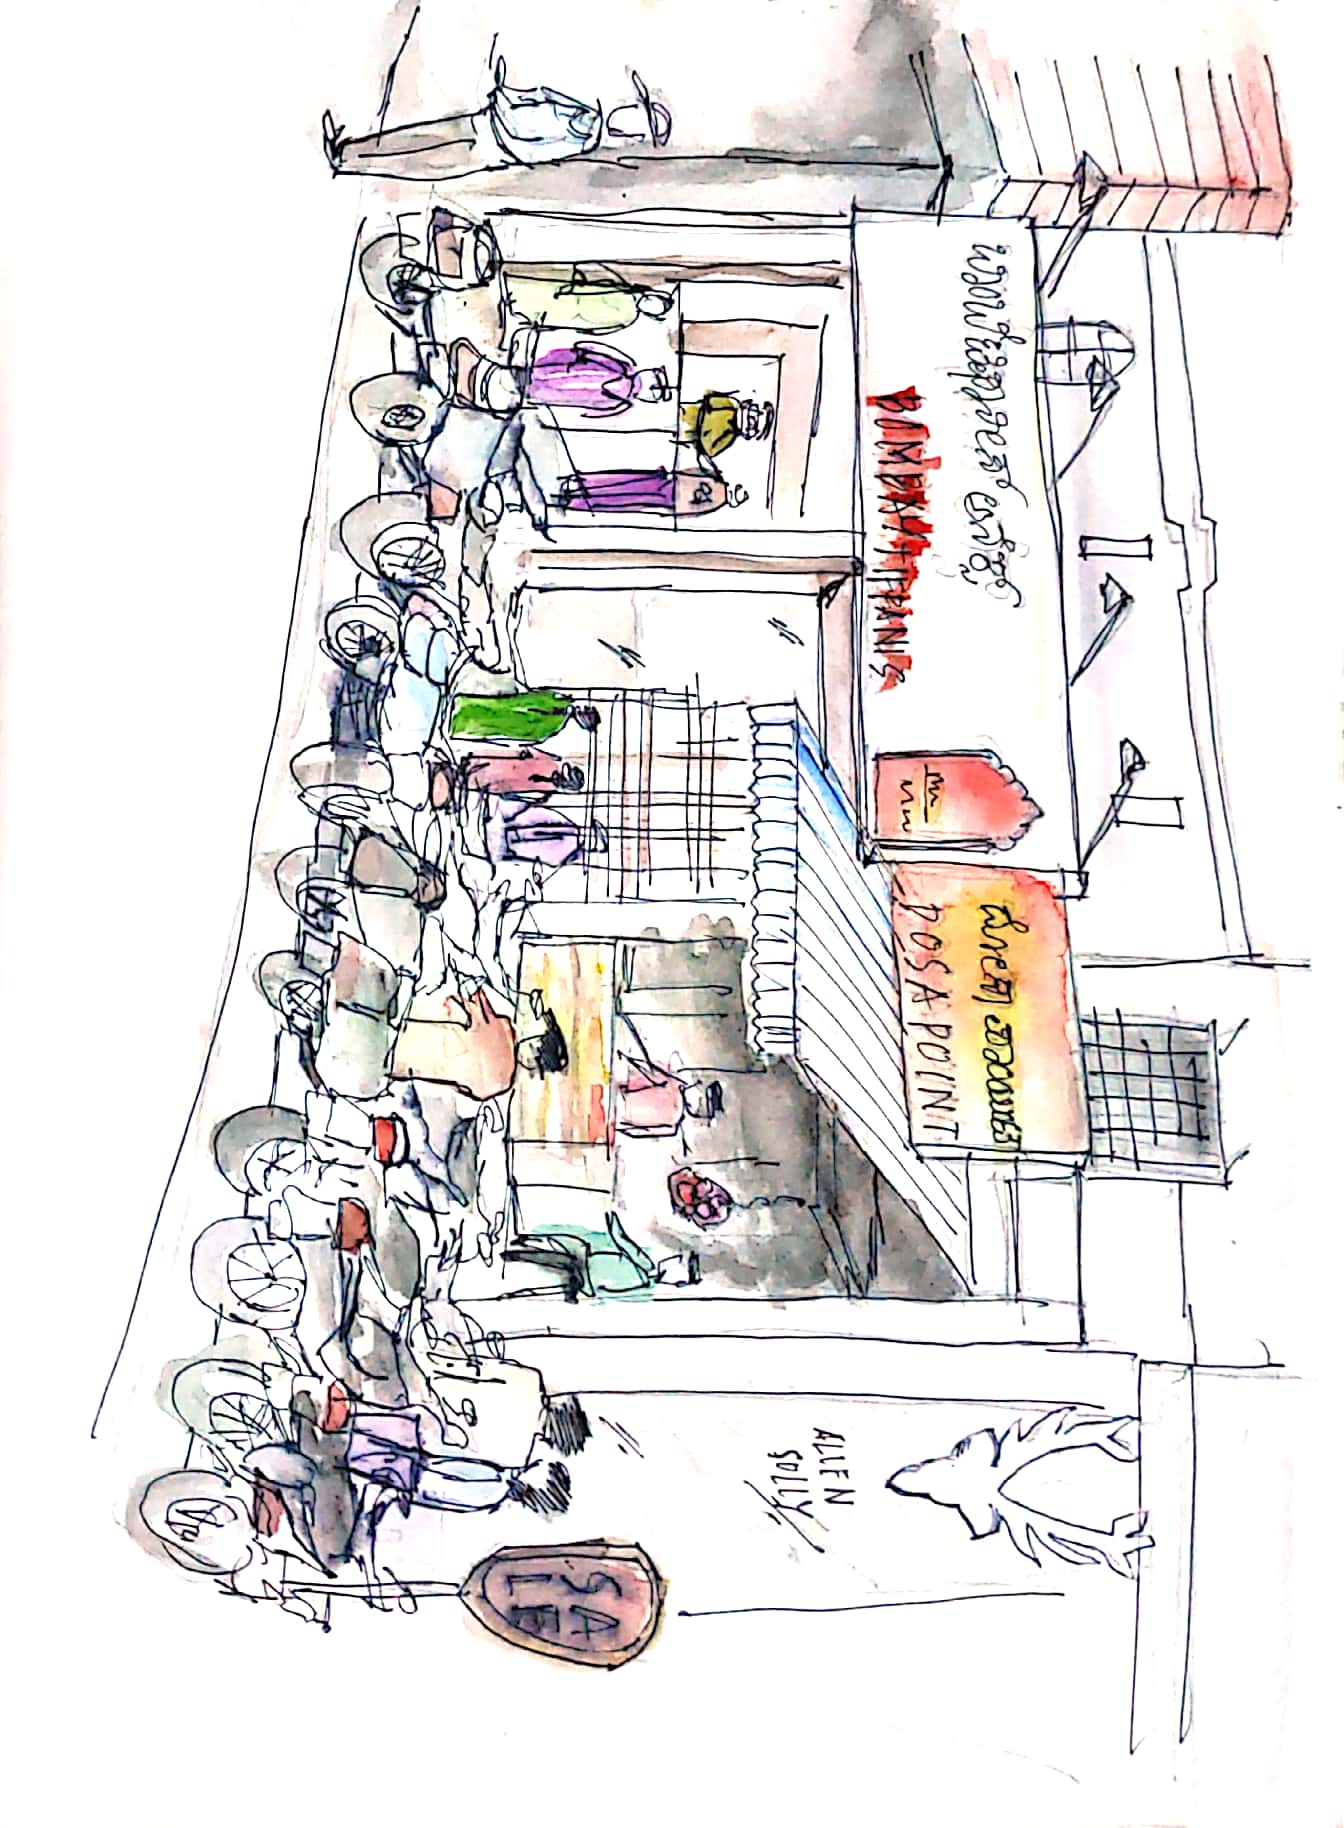 ಬಾಂಬೆ ಟಿಫಾನೀಸ್ ಅನೆಕ್ಸ್
BOMBAY TIFFANIS
ದೋಸಾ ಪಾಯಿಂಟ್
DOSA POINT
ALLEN
SOLLY
SA
LE